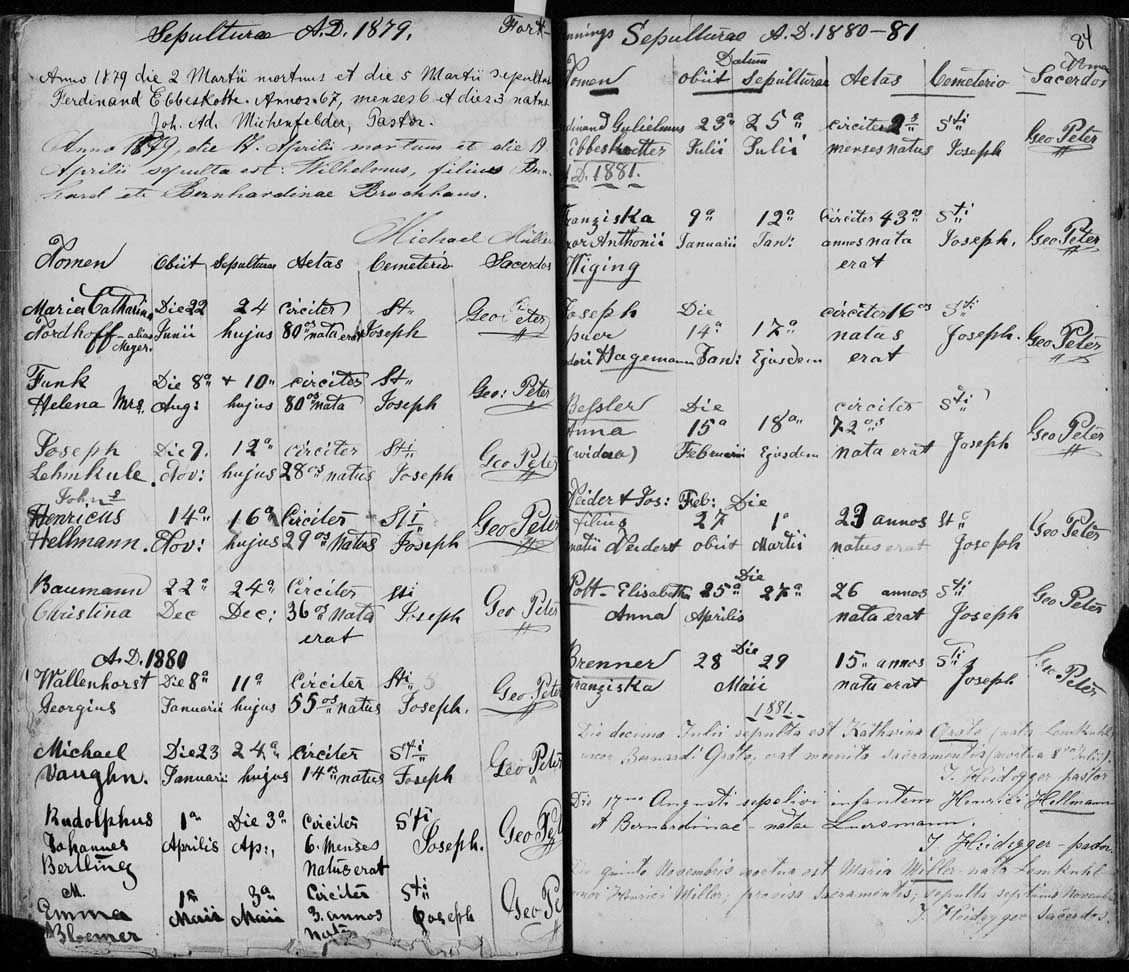 Sepulturae A.D. 1879. Fort-
Anno 1879 die 2 Martii mortuus et die 5 Martii sepultus
Ferdinand Ebbeskotte. Annos 67, menses 6 et dies 3 natus
Joh. Ad. Michenfelder, Pastor.
Anno 1879, die 17. Aprilis mortuus et die
Aprilis sepulta est: Wilhelmus, filius
hard et Bernhardinae Brockhaus.
Michael Müller
Nomen Obiit Sepulturae Aetas Cemeterio Sacerdos
Maria Catharina Die 22 24 circiter St.
Nordhoff - alias Junii hujus 80os nata erat Joseph Geo Peter
Meyer.
Funk Die 8a + 10a circiter Sti
Helena Mrs. Aug: hujus 80os nata Joseph Geo: Peter
Joseph Die 9. 12a circiter Sti
Lehmkule. Nov: hujus 28os natus Joseph Geo Peter
John
Henricus 14a 16a Circiter Sti
Hellmann. Nov: hujus 29os natus Joseph Geo Peter
Baumann 22a 24a Circiter Sti
Christina Dec Dec: 36os nata Joseph Geo Peter
erat
A.D. 1880
Wallenhorst Die 8a 11a Circiter Sti
Georgius Januarii hujus 55os natus Joseph. Geo Peter
Michael Die 23 24a Circiter Sti
Vaughn. Januarii hujus 14os natus Joseph Geo Peter
Rudolphus 1a Die 3a Circiter Sti
Johannes Aprilis Ap:, 6 menses Joseph. Geo Pet
Bertling natus erat
M. 1a 3a Circiter Sti
Emma Maii Maii 3. annos Joseph Geo Pe
Bloemer natus
nnings Sepulturae A.D. 1880-81 84
Datum
Nomen obiit Sepulturae Aetas Cemeterio Sacerdos
dinand Gulielmus 23a 25a circiter 2 Sti
Ebbeskotter Julii Julii menses natus Joseph Geo Peter
A.D. 1881.
Franziska 9a 12a Circiter 43a Sti
xor Anthonii Januarii Jan: annos nata Joseph. Geo Peter
Wiging erat
Joseph Die circiter 16os Sti
puer 14a 17a natus Joseph. Geo Peter
dori Hagemann Jan: Ejusdem erat
Bessler Die circiter Sti
Anna 15a 18a 72os
(widow) Februarii Ejusdem nata erat Joseph Geo Peter
Neidert Jos: Feb: Die
filius 27 1a 23 annos Sti
natii Neidert obiit Martii natus erat Joseph Geo Peter
Die
Post- Elisabetha 25a 27a 26 annos Sti
Anna Aprilis nata erat Joseph Geo Peter
Die
Brenner 28 29 15 annos Sti
Franziska Maii nata erat Joseph Geo Peter
1881.
Die decima Julii sepulta est Katharina Grota (nata Lemkuhl
uxor Bernardi Grota, erat munita sacramentis (mortua 8va Julii).
J. Heidegger pastor
Die 17ma Augusti sepelivi infantem Henrici Hellmann
et Bernardinae - natae Luersmann.
J. Heidegger - pastor
Die quinto Novembris mortua est Maria Miller nata Lemkuhl
uxor Henrici Miller, provisa Sacramentis; sepulta septima Novembr
J. Heidegger Sacerdos.